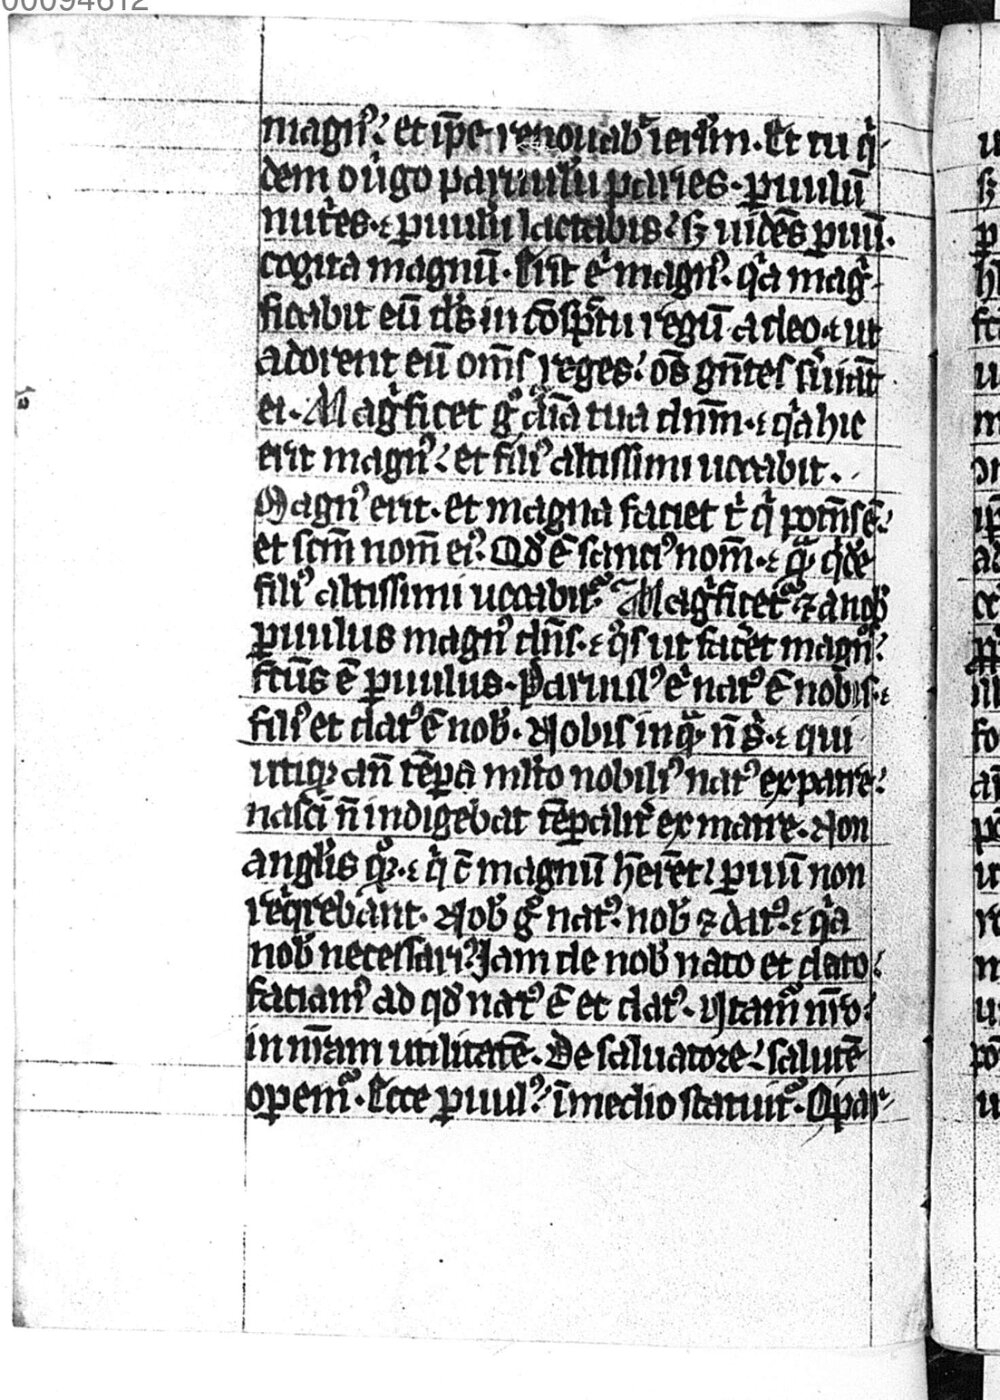 00094612
magn᷒: et ip̄e renouab᷑ ierl̄m. Et tu qͥ-
dem o uͥgo paruulū paries. ꝑuulū
nut᷑es. ⁊ ꝑuulū lactabis: sꝫ uidēs ꝑuū.
cogita magnū. Erit eͥ magn᷒. qͥa magͥ-
ficabit eū dn̄s in cōspc̄tu regū. adeo. ⁊ ut
adorent eū om̄s reges: oēs gn̄tes s᷑uiāt
ei. Magͥficet gͦ aīa tua dn̄m. ⁊ qͥa hic
erit magn᷒: et fili᷒ altissimi uocabit᷑.
Magn᷒ erit. et magna faciet tͥ qͥ potēs ē:
et scm̄ nom̄ ei᷒. Qd̄ ē sanci᷒ nom̄. ⁊ qͣ qd̄e
fili᷒ altissimi uocabit᷑. Magͥficet᷑ ⁊ a nob̄
ꝑuulus magn᷒ dn̄s. ⁊ qͦs ut fac᷑et magn᷒:
fc̄us ē ꝑuulus. Paruul᷒ eͥ nat᷒ ē nobis. ⁊
fili᷒ et dat᷒ ē nob̄. Nobis inqͣ. n̄ sͥ. ⁊ qui
utiqꝫ an̄ tēpa ml̄to nobili᷒ nat᷒ ex patre:
nasci n̄ indigebat tēpalit᷑ ex matre. Non
anglīs qͦqꝫ. ⁊ qͥ c̄ magnū h̄erēt: ꝑuū non
reqͥrebant. Nob̄ gͦ nat᷒. nob̄ ⁊ dat᷒. ⁊ qͥa
nob̄ necessari᷒. Iam de nob̄ nato et dato:
faciam᷒ ad qd̄ nat᷒ ē et dat᷒. Utam᷑ nr̄o:
in nr̄am utilitatē. De saluatore: salutē
opem᷑. Ecce ꝑuul᷒: ī medio statuit᷑. O par-